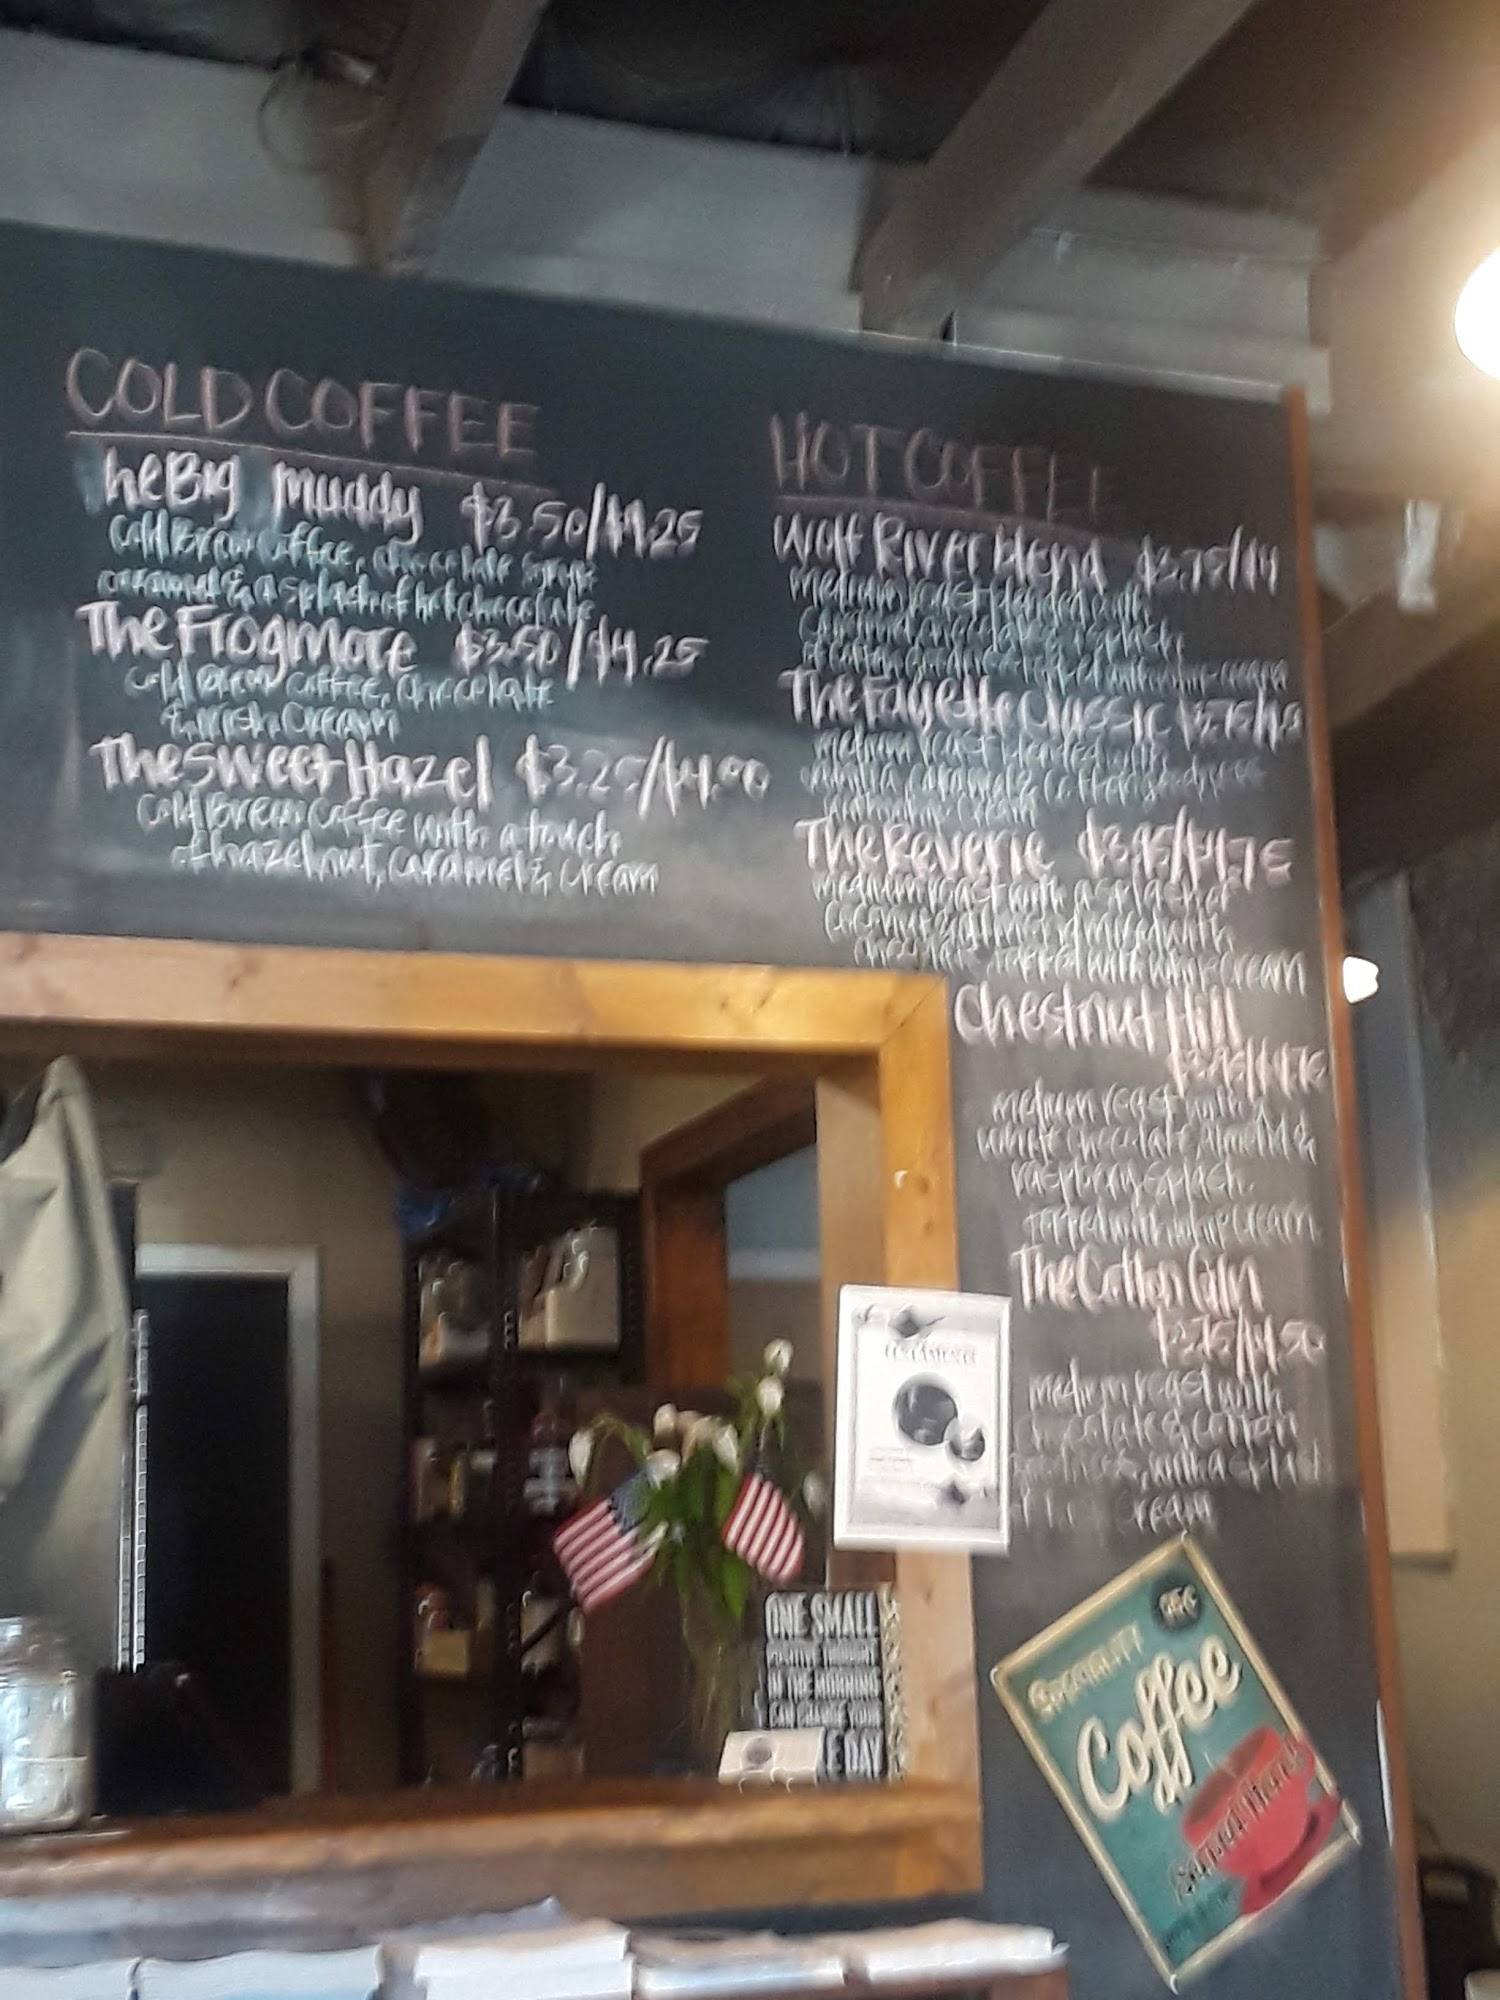 COLD COFFEE
he Big Muddy $3.50/$4.25
Cold Brew Coffee, chocolate syrup
caramel & a splash of hot chocolate
The Frogmore $3.50/$4.25
Cold Brew Coffee, Chocolate
& Irish Cream
The Sweet Hazel $3.25/$4.00
Cold Brew Coffee with a touch
of hazelnut, caramel & cream
HOT COFFEE
Wolf River blend $3.75/$4
medium roast blended with
topped with whip cream
The Fayette Classic
medium roast blended with
whip cream
The Reverie $3.95/$4.75
medium roast with a splash of
coconut & almond mixed with
topped with whip cream
Chestnut Hill
$3.95/$4.75
medium roast with
white chocolate, Almond &
raspberry splash.
topped with whip cream
The Cotton Gin
$3.75/$4.50
medium roast with
chocolate & cotton
with a splash
Cream
ONE SMALL
POSITIVE THOUGHT
IN THE MORNING
CAN CHANGE YOUR
E DAY
SPECIALITY
25¢
Coffee